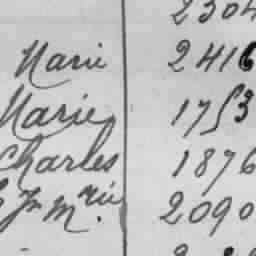 2304
Marie 2416
Marie 1753
Charles 1876
Jn Mrie 2090